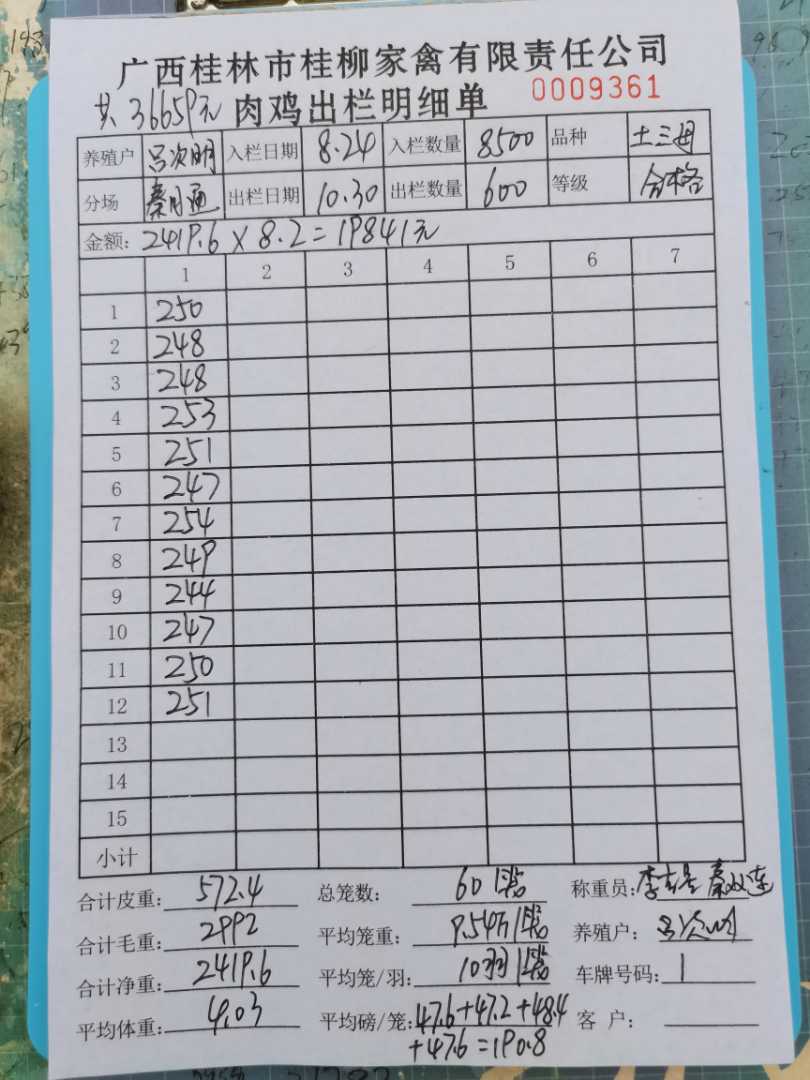 广西桂林市桂柳家禽有限责任公司
共36659元 肉鸡出栏明细单 0009361
养殖户 吕次明 入栏日期 8.24 入栏数量 8500 品种 土三母
分场 秦月通 出栏日期 10.30 出栏数量 600 等级 合格
金额: 2419.6 × 8.2 = 19841元
1 2 3 4 5 6 7
1 250
2 248
3 248
4 253
5 251
6 247
7 254
8 249
9 244
10 247
11 250
12 251
13
14
15
小计
合计皮重: 572.4 总笼数: 60 称重员:
合计毛重: 2992 平均笼重: 9.54 养殖户: 吕次明
合计净重: 2419.6 平均笼/羽: 10羽 车牌号码: 1
平均体重: 4.03 平均磅/笼: 47.6+47.2+48.4 客户:
+47.6=190.8